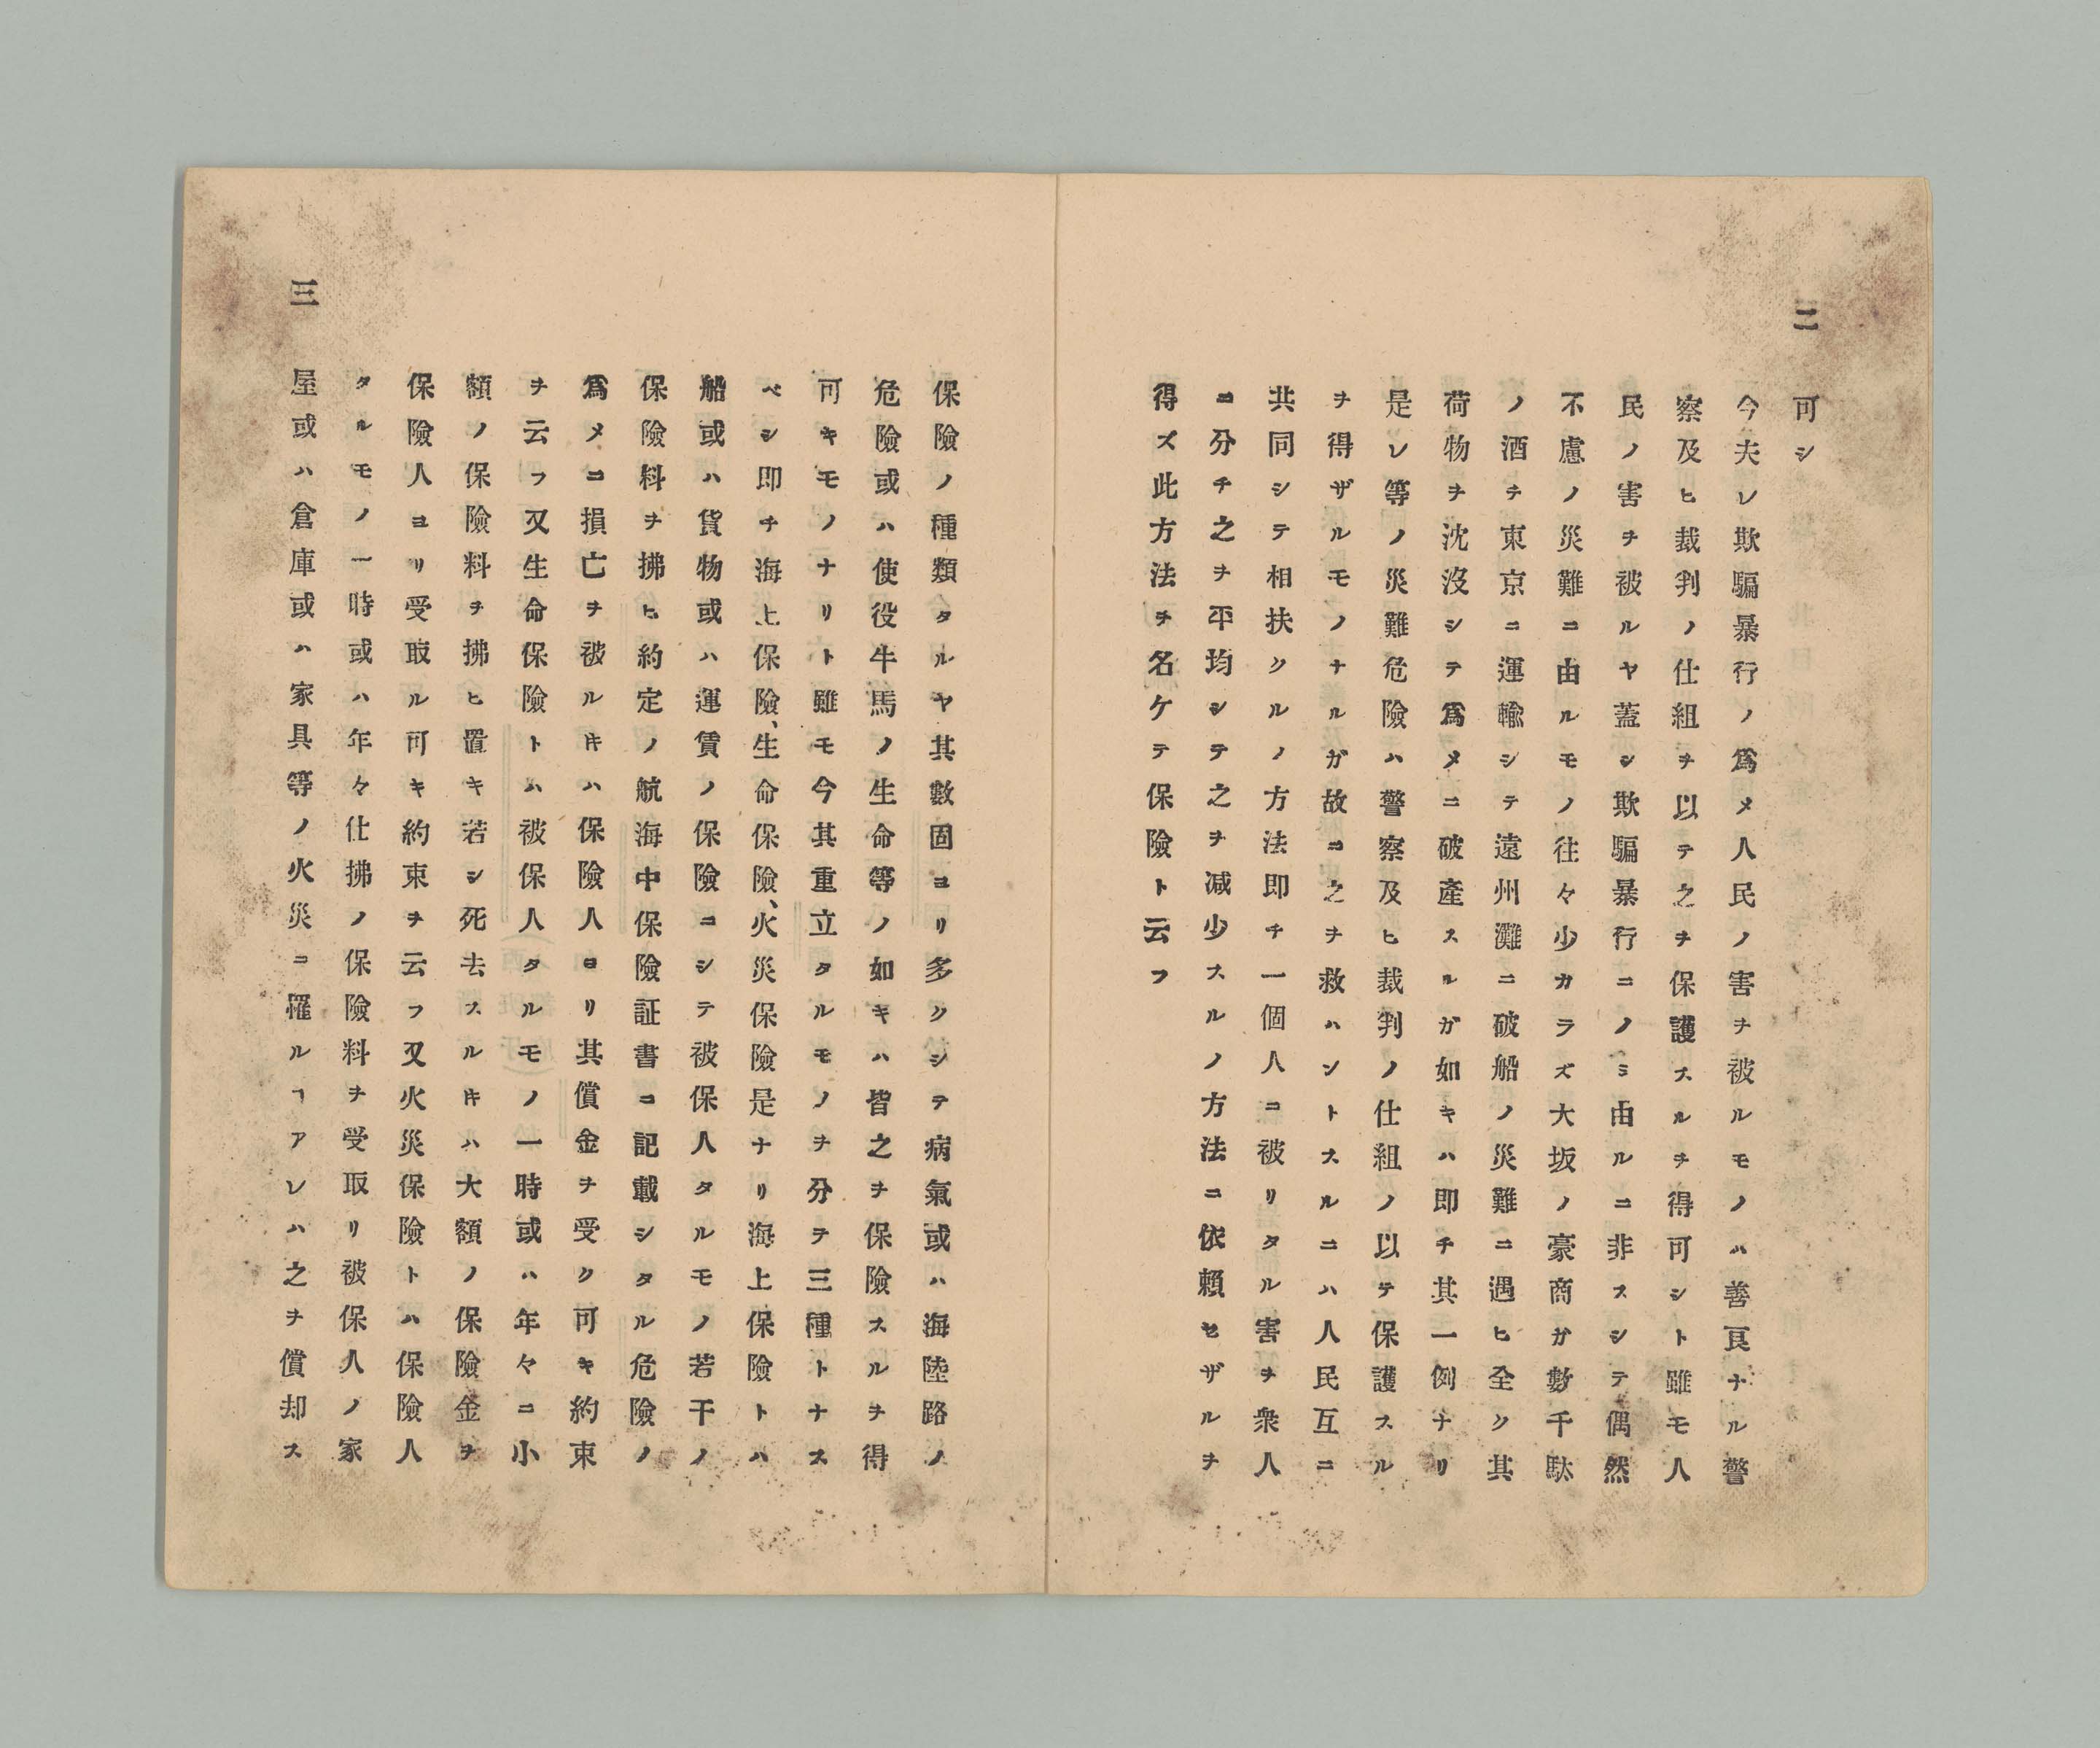 二
可シ
今夫レ欺騙暴行ノ爲メ人民ノ害ヲ被ルモノハ善良ナル警
察及ヒ裁判ノ仕組ヲ以テ之ヲ保護スルヲ得可シト雖モ人
民ノ害ヲ被ルヤ蓋シ欺騙暴行ニノミ由ルニ非スシテ偶然
不慮ノ災難ニ由ルモノ往々少カラズ大坂ノ豪商ガ數千駄
ノ酒ヲ東京ニ運輸シテ遠州灘ニ破船ノ災難ニ遇ヒ全ク其
荷物ヲ沈沒シテ爲メニ破産スルガ如キハ即チ其一例ナリ
是レ等ノ災難危險ハ警察及ヒ裁判ノ仕組ノ以テ保護スル
ヲ得ザルモノナルガ故ニ之ヲ救ハントスルニハ人民互ニ
共同シテ相扶クルノ方法即チ一個人ニ被リタル害ヲ衆人
ニ分チ之ヲ平均シテ之ヲ减少スルノ方法ニ依賴セザルヲ
得ズ此方法ヲ名ケテ保險ト云フ
保險ノ種類タルヤ其數固ヨリ多クシテ病氣或ハ海陸路ノ
危險或ハ使役牛馬ノ生命等ノ如キハ皆之ヲ保險スルヲ得
可キモノナリト雖モ今其重立タルモノヲ分テ三種トナス
ベシ即チ海上保險、生命保險、火災保險是ナリ海上保險トハ
船或ハ貨物或ハ運賃ノ保險ニシテ被保人タルモノ若干ノ
保險料ヲ拂ヒ約定ノ航海中保險証書ニ記載シタル危險ノ
爲メニ損亡ヲ被ルキハ保險人ヨリ其償金ヲ受ク可キ約束
ヲ云フ又生命保險トハ被保人タルモノ一時或ハ年々ニ小
額ノ保險料ヲ拂ヒ置キ若シ死去スルキハ大額ノ保險金ヲ
保險人ヨリ受取ル可キ約束ヲ云フ又火災保險トハ保險人
タルモノ一時或ハ年々仕拂ノ保險料ヲ受取リ被保人ノ家
屋或ハ倉庫或ハ家具等ノ火災ニ罹ルヿアレハ之ヲ償却ス
三